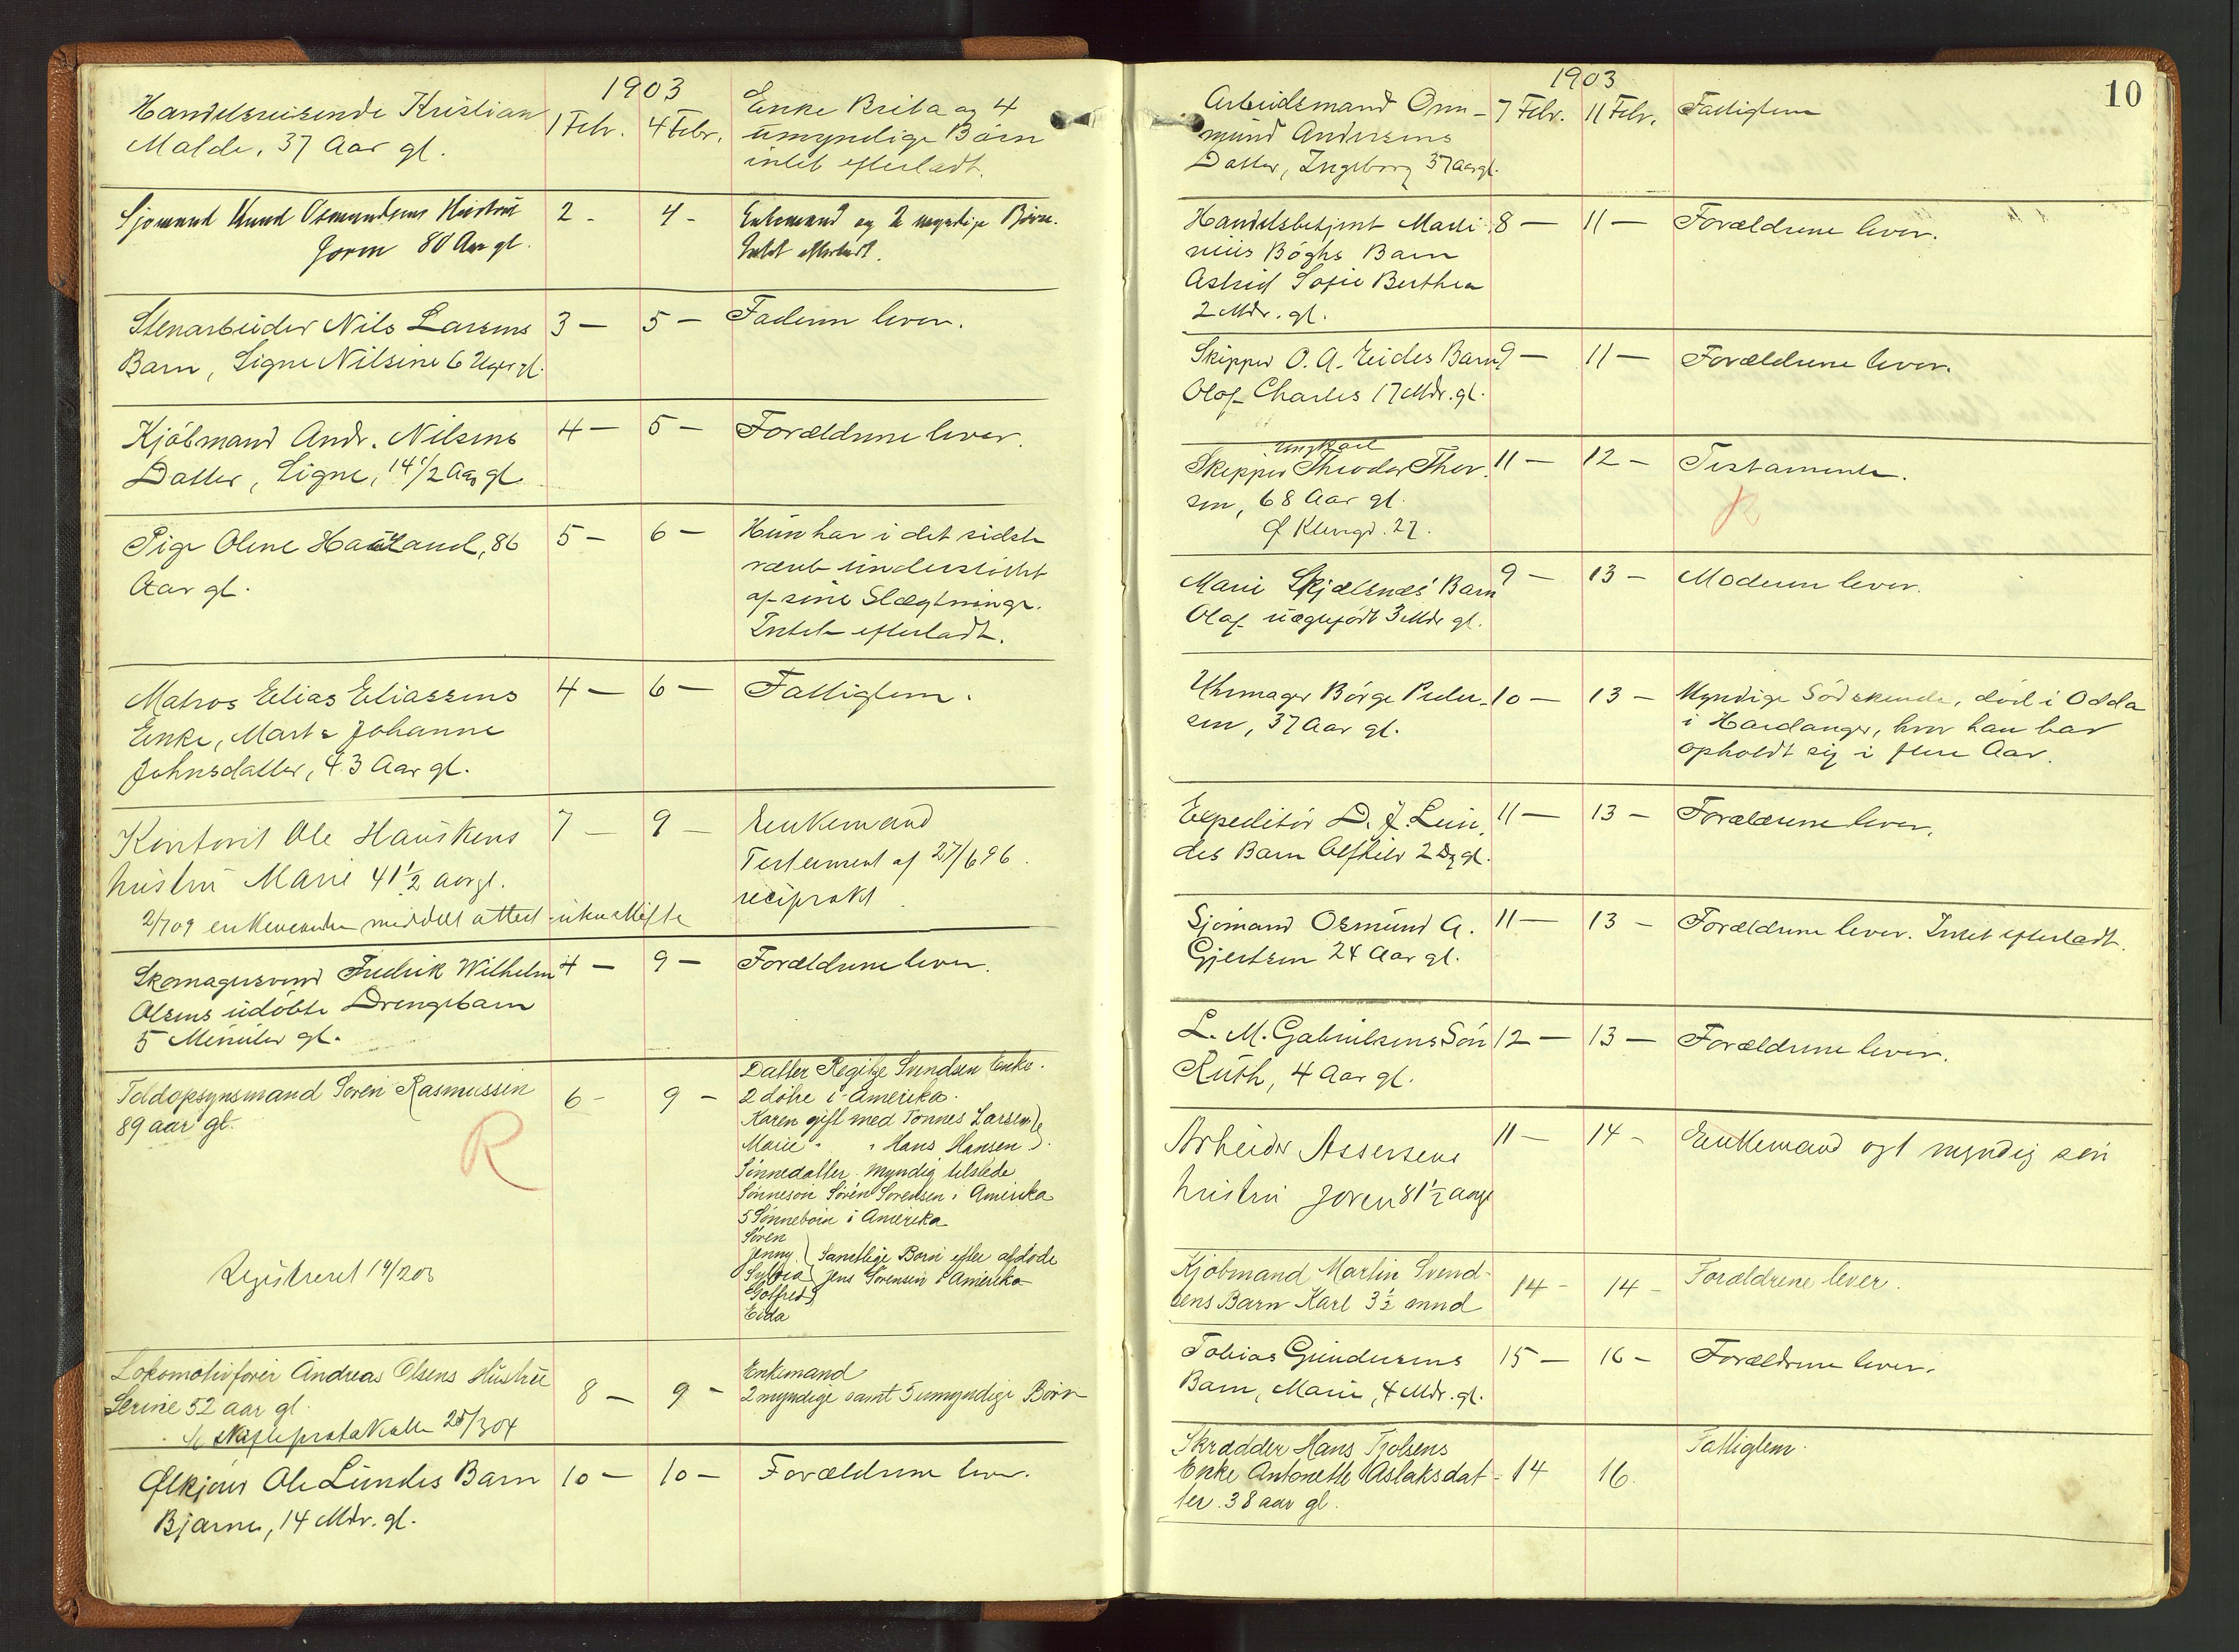 1903
Handelsreisende Kristian 1 Febr. 4 Febr. Enke Brita og 4
Malde, 37 Aar gl. umyndige Børn
intet efterladt.
Sjømand Knud Osmundsens Hustru 2 - 4 - Enkemand og 2 myndige Børn.
Joren 80 Aar gl. Intet efterladt.
Stenarbeider Nils Larsens 3 — 5 — Faderen lever.
Barn, Signe Nilsine 6 Uger gl.
Kjøbmand Andr. Nilsens 4 — 5 — Forældrene lever.
Datter, Signe, 14 1/2 Aar gl.
Pige Olene Haaland, 86 5 — 6 — Hun har i det sidste
Aar gl. været understøttet
af sine Slægtninge.
Intet efterladt.
Matros Elias Eliassens 4 — 6 — Fattiglem.
Enke, Marta Johanne
Johnsdatter, 43 Aar gl.
Kontorist Ole Hauskens 7 — 9 — Enkemand
hustru Marie 41 1/2 aar gl. Testament af 27/6 96.
reciprokt.
2/7 09 enkemanden meddelt attest - uten skifte
Skomagersvend Fredrik Wilhelm 4 — 9 — Forældrene lever.
Olsens udøbte Drengebarn
5 Minuter gl.
Toldopsynsmand Søren Rasmussen 6 - 9 - Datter Regitze Svendsen Enke.
89 aar gl. 2 døtre i Amerika.
R Karen gift med Tønnes Larsen
Marie " " Hans Hansen
Sønnedatter myndig tilstede
Sønnesøn Søren Sørensen i Amerika
5 Sønnebørn i Amerika
Søren
Jenny Samtlige Børn efter afdøde
Sylvia Jens Sørensen i Amerika
Gotfred
Edda
Registreret 14/2 03
Lokomotivfører Andreas Olsens Hustru 8 — 9 - Enkemand
Serine 52 aar gl. 2 myndige samt 5 umyndige Børn
Skifteprotokollen 25/3 04
Ølkjører Ole Lundes Barn 10 — 10 — Forældrene lever.
Bjarne, 14 Mdr. gl.
10
1903
Arbeidsmand Om- 7 Febr. 11 Febr. Fattiglem
mund Andersens
Datter, Ingeborg 37 Aar gl.
Handelsbetjent Marti- 8 — 11 — Forældrene lever.
nius Bøghs Barn
Astrid Sofie Berthea
2 Mdr. gl.
Skipper O. A. Eides Barn 9 — 11 — Forældrene lever.
Olaf Charles 17 Mdr. gl.
ungkarl
Skipper Theodor Thor- 11 — 12 — Testamente.
sen, 68 Aar gl. R
Klengd. 27.
Marie Skjælsnæs' Barn 9 — 13 — Moderen lever.
Olaf uægtefødt 3 Mdr gl.
Uhrmager Børge Peder- 10 — 13 — Myndige Sødskende, død i Odda
sen, 37 Aar gl. i Hardanger, hvor han har
opholdt sig i flere Aar.
Expeditør D. J. Lun- 11 — 13 — Forældrene lever.
des Barn Alfhild 2 Dg gl.
Sjømand Osmund A. 11 — 13 — Forældrene lever. Intet efterladt.
Gjertsen 24 Aar gl.
L. M. Gabrielsens Søn 12 — 13 — Forældrene lever.
Ruth, 4 Aar gl.
Arbeider Assersens 11 — 14 - Enkemand og 1 myndig søn
hustru Joren 81 1/2 aar gl
Kjøbmand Martin Svend- 14 - 14 - Forældrene lever.
sens Barn Karl 3 1/2 mnd
Tobias Gundersens 15 — 16 — Forældrene lever.
Barn, Marie, 4 Mdr. gl.
Skrædder Hans Tjølsens Fattiglem.
Enke Antonette Aslaksdat- 14 16.
ter. 38 aar gl.